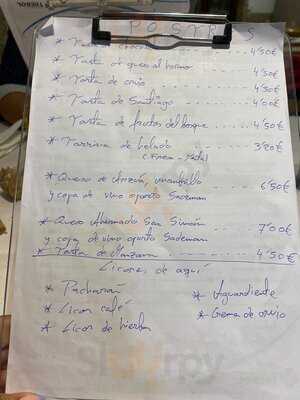 POSTRES
* Tarta 4'50€
* Tarta de queso al horno 4'50€
* Tarta de orujo 4'50€
* Tarta de Santiago 4'00€
* Tarta de frutos del bosque 4'50€
* Tarrina de helado 3'20€
* Queso de Arzúa, membrillo
y copa de vino oporto Sademan 6'50€
* Queso Ahumado San Simón 7'00€
y copa de vino oporto Sademan
* Tarta de Manzana 4'50€
Licores de aquí
* Pacharán
* Licor café
* Licor de hierba
* Aguardiente
* Crema de orujo